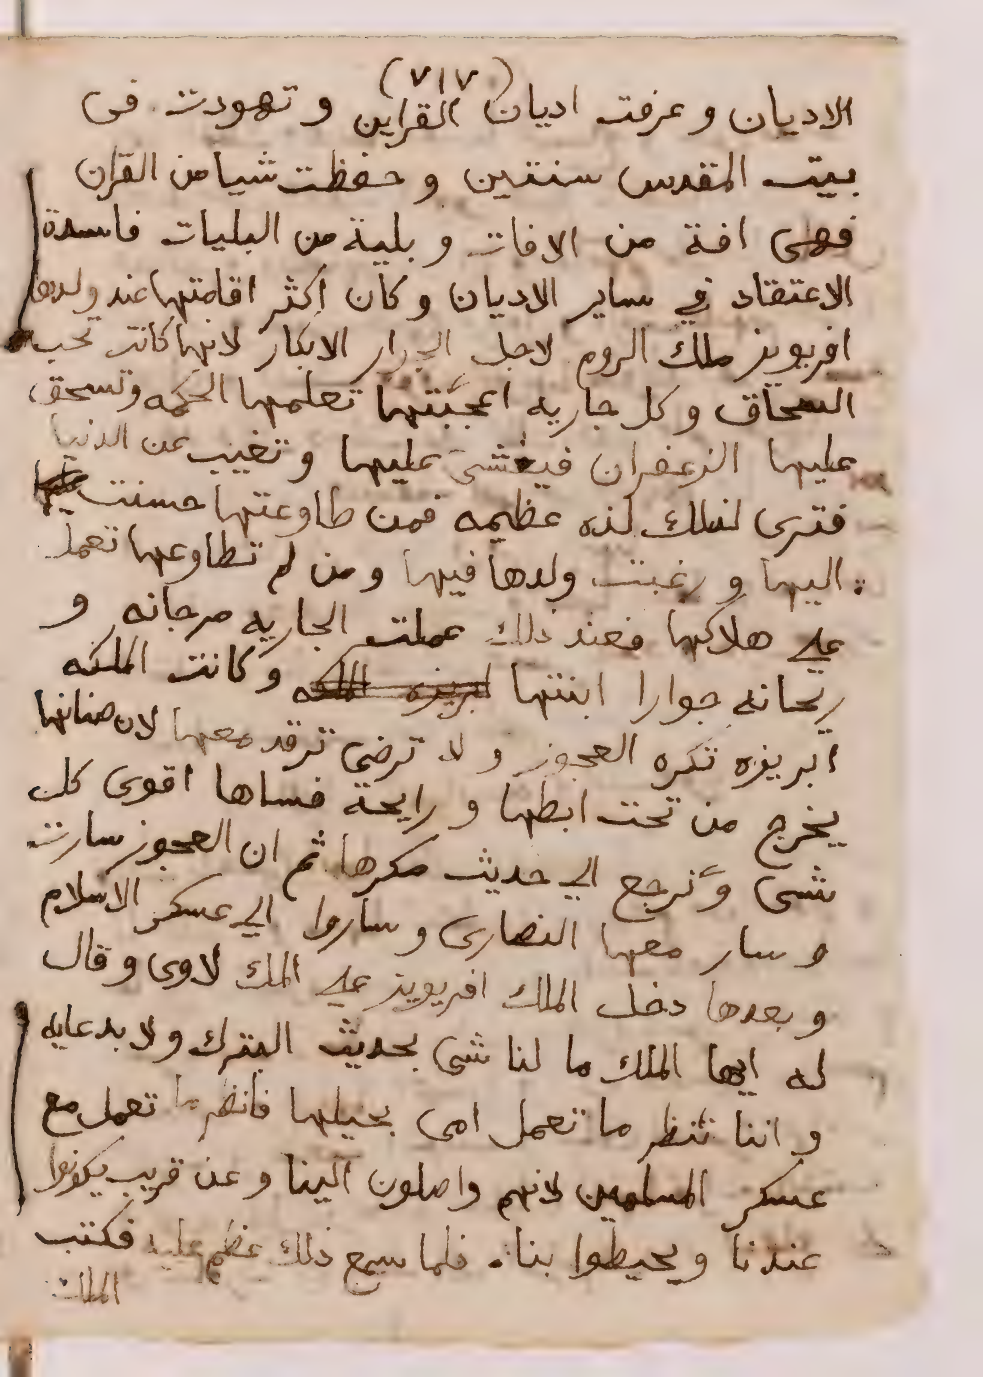 (٧١٧)
الاديان و عرفت اديان القراين و تهودت فى
بيت المقدس سنتين و حفظت شيا من القران
فهى افة من الافات و بلية من البليات فاسدة
الاعتقاد في ساير الاديان و كان اكثر اقامتها عند ولدها
افريويز ملك الروم لاجل الجوار الابكار لانها كانت تحب
السحاق و كل جاريه اعجبتها تعلمها الحكمه و تسحق
عليها الزعفران فيغشى عليها و تغيب عن الدنيا
فترى لذلك لذه عظيمه فمن طاوعتها حسنت
اليها و رغبت ولدها فيها و من لم تطاوعها تعمل
علي هلاكها فعند ذلك عملت الجاريه مرجانه و
ريحانه جوارا ابنتها ابريزه الملكه و كانت الملكه
ابريزه تكره العجوز و لا ترضى ترقد معها لان صنانها
يخرج من تحت ابطها و رايحة فساها اقوى كل
شى و نرجع الي حديث مكرها ثم ان العجوز سارت
و سار معها النصارى و ساروا الي عسكر الاسلام
و بعدها دخل الملك افريويز علي الملك لاوى و قال
له ايها الملك ما لنا شى بحديث البترك و لا بدعايه
و اننا ننظر ما تعمل امى بحيلها فانظر ما تعمل مع
عسكر المسلمين لانهم واصلون الينا و عن قريب يكونوا
عندنا و يحيطوا بنا. فلما سمع ذلك عظم عليه فكتب
الملك